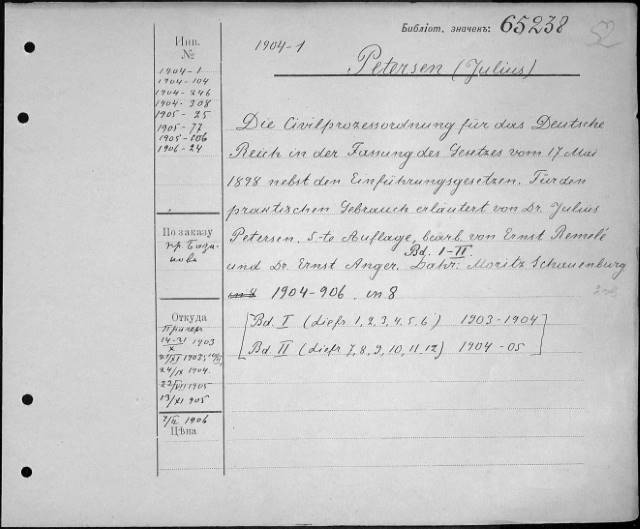 Библіот. значекъ: 65238
52
Инв.
№
1904-1
1904-104
1904-246
1904-308
1905-25
1905-77
1905-106
1906-24
По заказу
пр. База-
нова
Откуда
14-21/X 1903
24/IX 1904
22/VII 1905
19/XI 905
7/II 1906
Цѣна
1904-1
Petersen (Julius)
Die Civilprozessordnung für das Deutsche
Reich in der Fassung des Gesetzes vom 17. Mai
1898 nebst den Einführungsgesetzen. Für den
praktischen Gebrauch erläutert von Dr. Julius
Petersen. 5-te Auflage, bearb. von Ernst Remelé
Bd. I-II.
und Dr. Ernst Anger. Lahr: Moritz Schauenburg
in 8 1904-906. in 8
Bd. I (Liefr 1, 2, 3, 4, 5, 6) 1903-1904
Bd. II (Liefr 7, 8, 9, 10, 11, 12) 1904-05